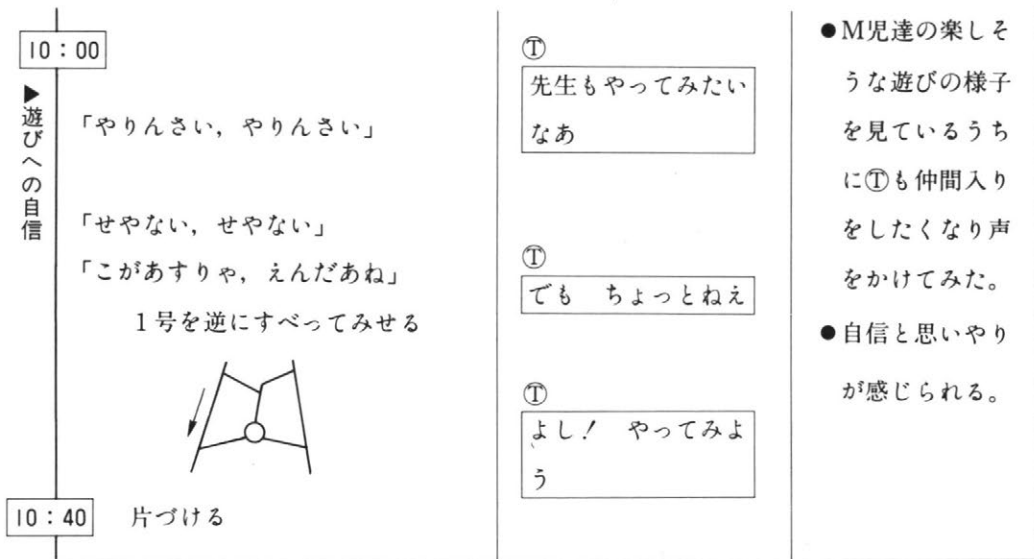 10：00
▶遊びへの自信
「やりんさい，やりんさい」
「せやない，せやない」
「こがあすりゃ，えんだあね」
1号を逆にすべってみせる
10：40
片づける
Ⓣ
先生もやってみたい
なあ
Ⓣ
でも　ちょっとねえ
Ⓣ
よし！　やってみよ
う
●M児達の楽しそ
うな遊びの様子
を見ているうち
にⓉも仲間入り
をしたくなり声
をかけてみた。
●自信と思いやり
が感じられる。